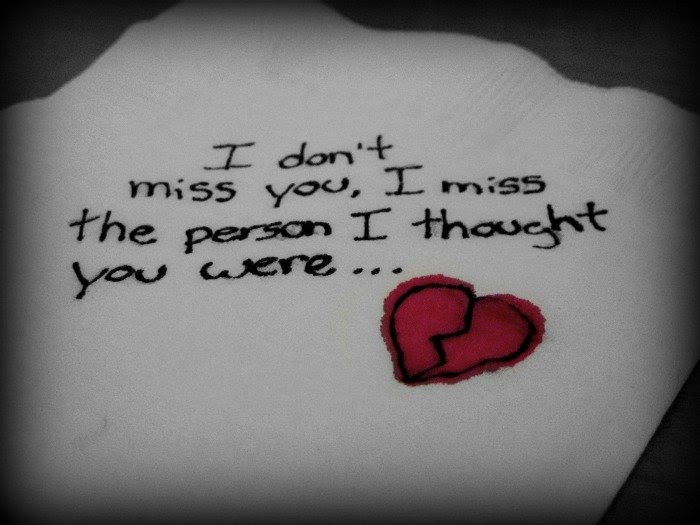 I don't
miss you, I miss
the person I thought
you were...